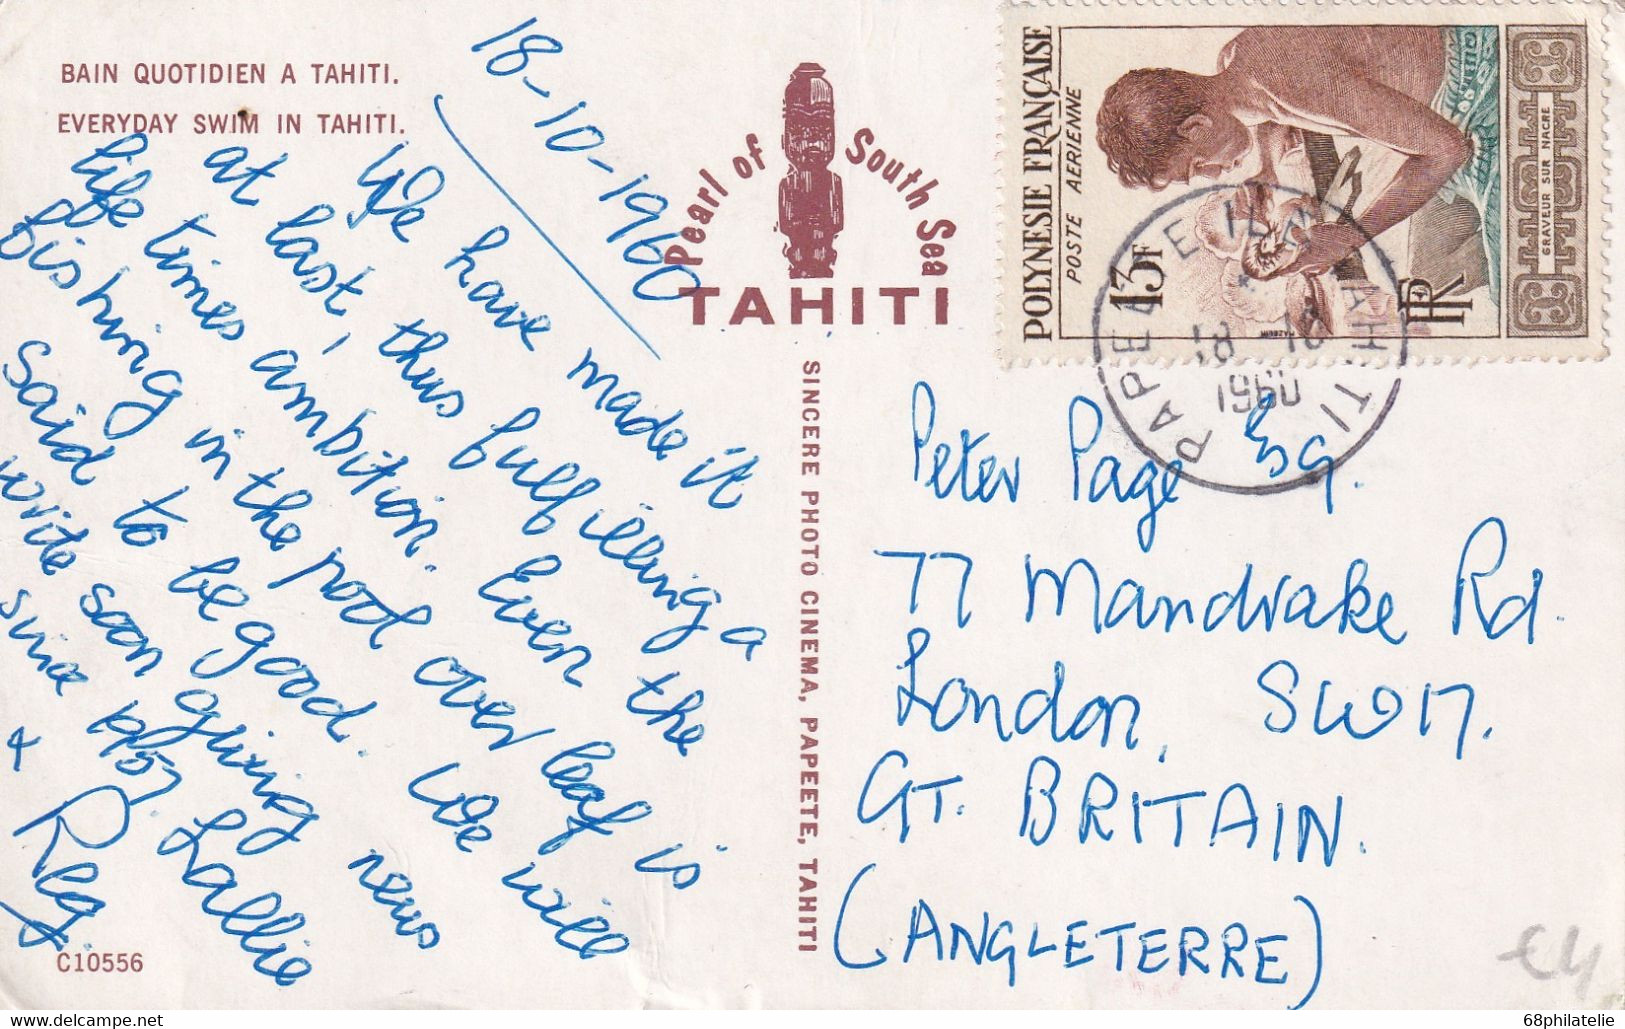 BAIN QUOTIDIEN A TAHITI.
EVERYDAY SWIM IN TAHITI.
18-10-1960
We have made it
at last, thus fulfilling a
life times ambition. Even the
fishing in the pool over leaf is
said to be good. We will
write soon giving news
since
Lallie
+ Reg.
C10556
Pearl of South Sea
TAHITI
SINCERE PHOTO CINEMA, PAPEETE, TAHITI
POLYNESIE FRANÇAISE
POSTE AERIENNE
13F
RF
GRAVEUR SUR NACRE
PAPEETE ILE TAHITI
Peter Page Esq.
77 Mandrake Rd.
London, SW17.
GT. BRITAIN.
(ANGLETERRE)
€4
68philatelie